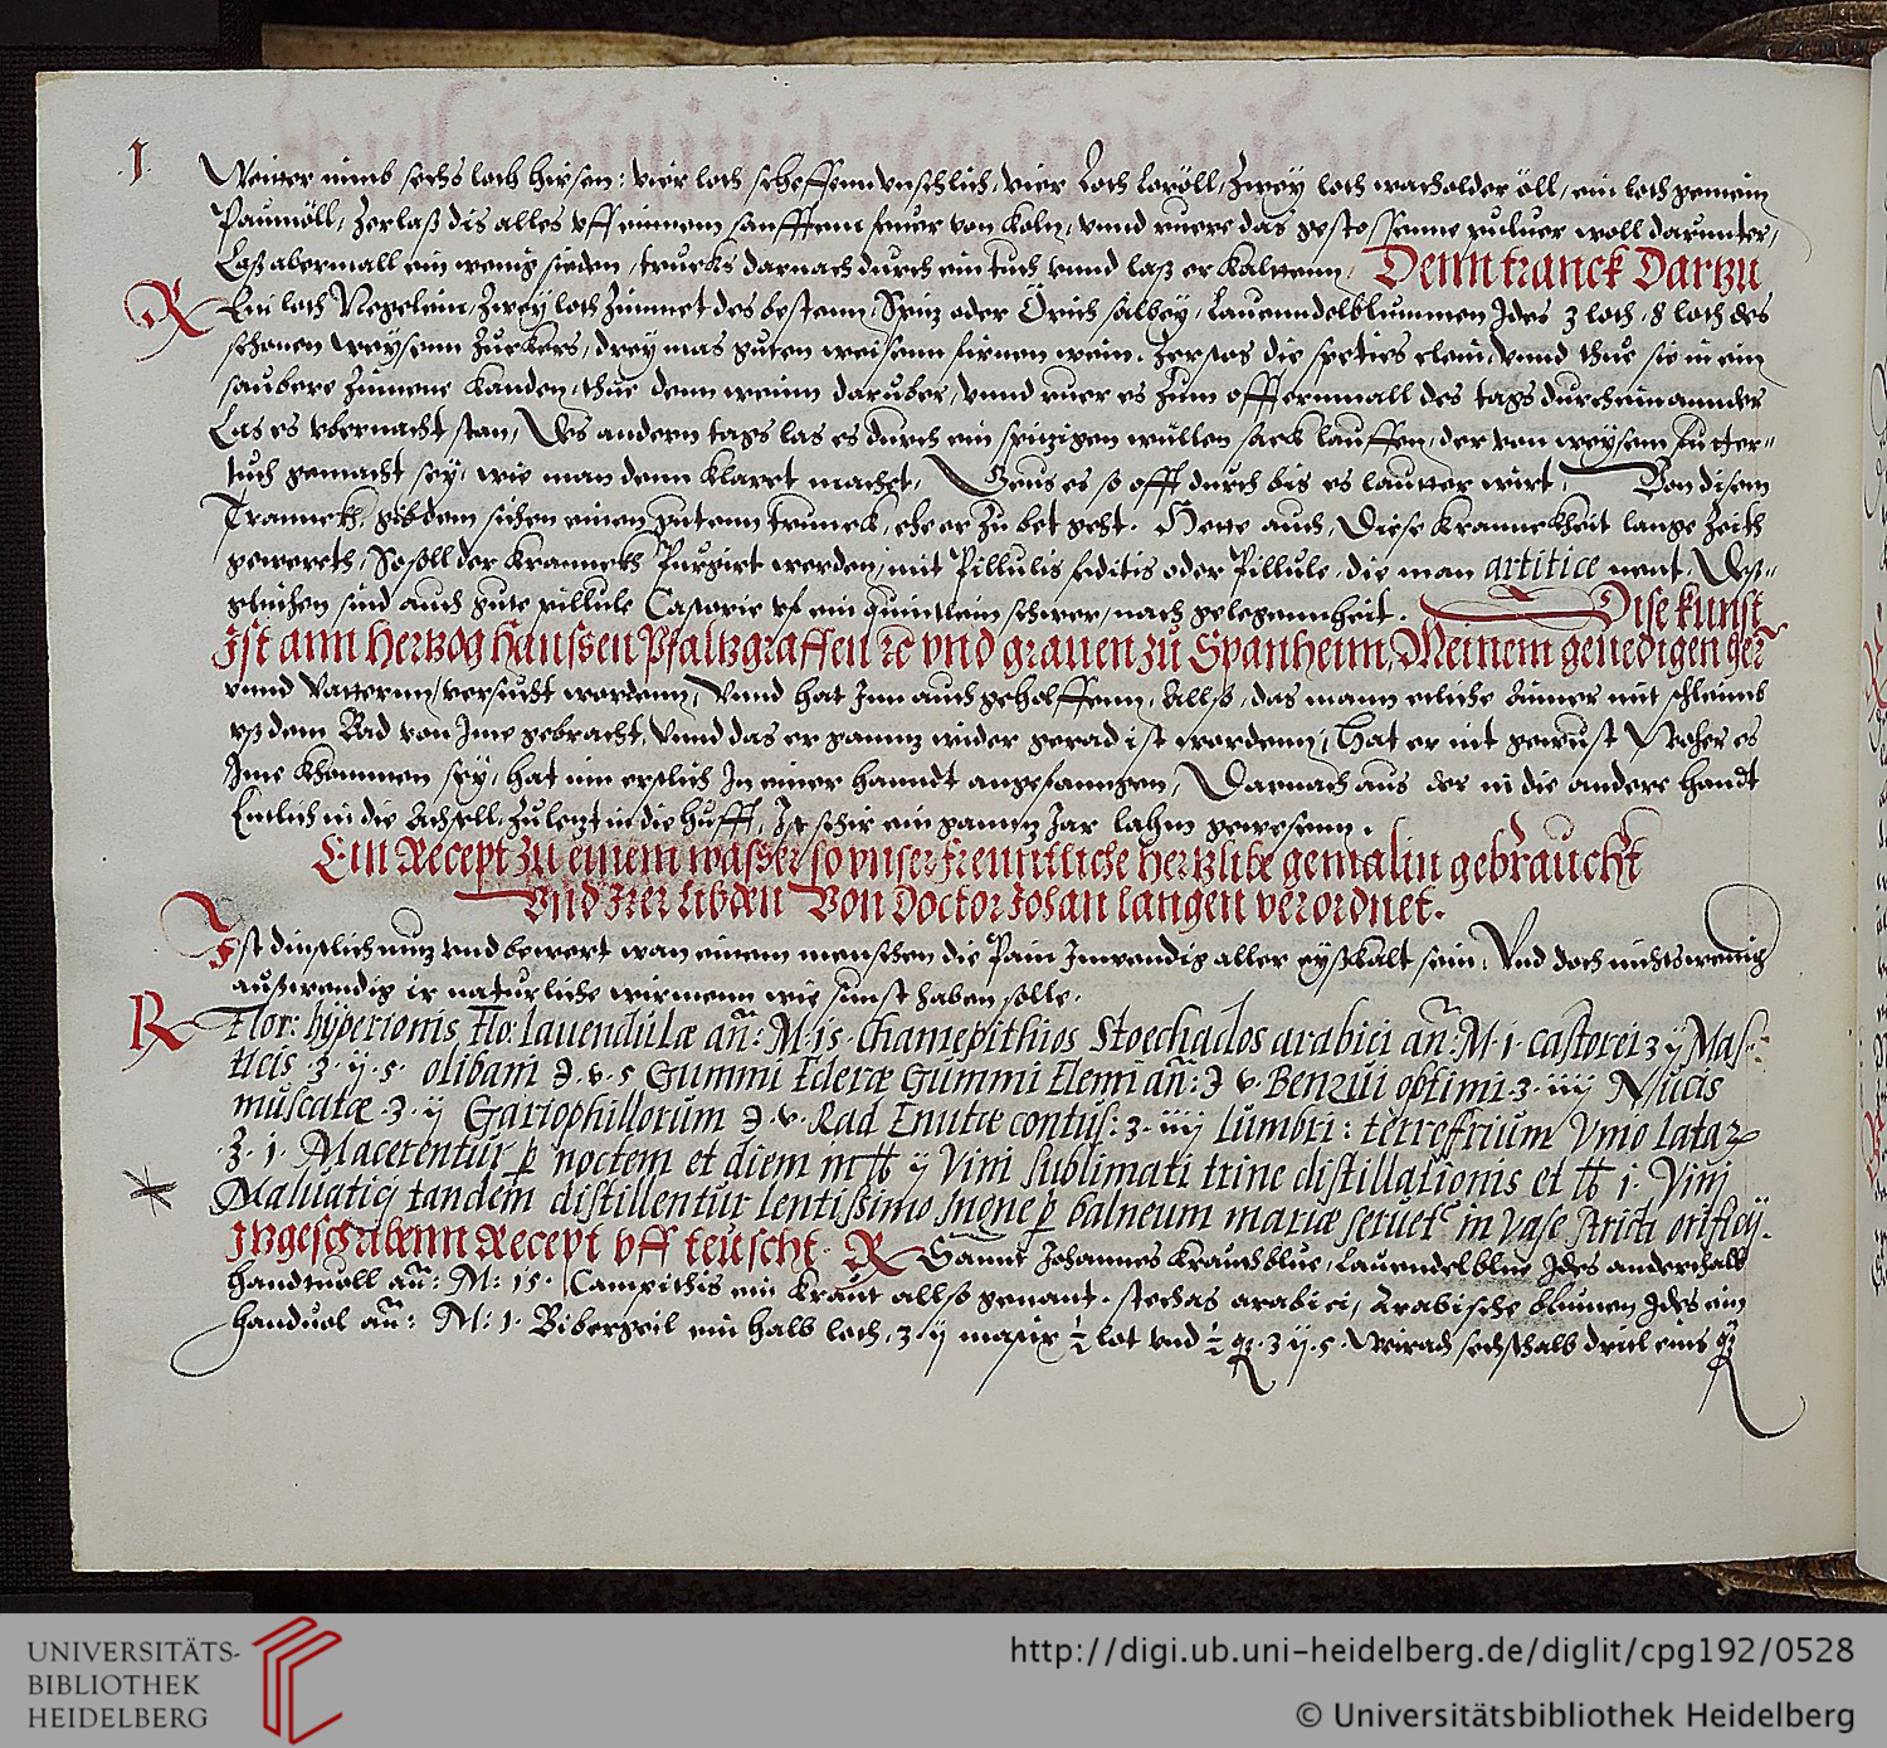 .1.
Weitter nimb sechs loth hirsen: vier loth scheffenn vnschlich, vier Loth loröll, Zwey loth wacholder öll, ein loth gemein
Paumöll, Zerlaß dis alles vff einnem sanfftem feuer von Koln, vnnd ruere das gestossenne puluer woll darunter,
Laß abermall ein wenig sieden, trucks darnach durch ein tuch vnnd laß er kaltenn, Denn tranck Dartzu
R Ein loth Negelein, Zwey loth Zimmet des bestenn, Spitz oder Örich salbey, Lauenndelblummen Jdes 3 loth, 8 loth des
schonen weyssenn Zuckers, drey mas guten weissenn firnen wein. Zerstos die speties clein, vnnd thue sie in ein
saubere Zinnene kanden, thue denn weinn daruber, vnnd ruer es Zum offternmall des tags durcheinannder
Las es vbernacht stan, Des andern tags las es durch ein spitzigen wüllen sack lauffen, der von weyssem futter-
tuch gemacht sey, wie man denn klaret machet, Geus es so offt durch bis es lautter wirt, Von disem
Tranneck, gib dem sichen einen gutenn trunck, ehe er Zu bet geht. Hette auch, Diese kranneckheit lange Zeith
gewereth, So soll der kranneck Purgirt werden, mit Pillulis feditis oder Pillule, die man artitice nent, Des-
gleichen sind auch gute pillule Castorie vf ein quintlein schwer, nach gelegennheit. Dise kunst
Jst ann Hertzog Hanssen Pfaltzgraffen rc vnd grauen zu Spanheim, Meinem genedigen her
vnnd Vatternn, versucht wordenn, Vnnd hat Jnn auch geholffenn, Allso, das mann etliche Aimer mit schleimb
vß dem Bad von Jme gebracht, Vnnd das er ganntz wider gerad ist wordenn, Hat er nit gewust Woher es
Jme khommen sey, hat im erstlich Jn einer hanndt angefanngen, Darnach aus der in die andere handt
Entlich in die Achsell, Zu letzt in die hufft, Jst schir ein ganntz Jar lahm gewesenn.
Ein Recept zu einem wasser so vnser freuntliche hertzlibe gemalin gebraucht
Vnd Jrer libden Von Doctor Johan langen verordnet.
Jst dinstlich nutz vnd bewert wan einem menschen die Pain Jnwendig aller eyßkalt sein, Vnd doch nichtsweinig
außwendig ir naturliche wirmenn wie sunst haben solle.
R Flor: hÿperionis Flo: lauendulæ añ: M: is. Chamepithios Stoechados arabici añ: M. i. castorei ʒ ij Mas-
ticis .ʒ. ij. s. olibani ℈. v. s Gummi Ederæ Gummi Elemi añ: ℈ v. Benzui optimi .ʒ. iiij Nucis
muscatæ .ʒ. ij Gariophillorum ℈. v. Rad Enulæ contus: ʒ. iiij lumbri: terreffrium Vino lataꝝ
.ʒ. i. Macerentur ꝑ noctem et diem in ℔ ij Vini sublimati trine distillationis et ℔ i. Vini
* Maluatici tandem distillentur lentissimo Jngne ꝑ balneum mariæ seruetᷤ in vase stricti orificij.
Jtzgeschribenn Recept vff teuscht. R Sannt Johannes krauthblue, Lauendelblue Jdes anderthalb
handtuoll añ: M: is. Campithis ein kraut allso genant. stechas arabici, Arabische blumen Jdes ein
handuol añ: M: 1. Bibergeil ein halb loth, ʒ ij mastix ½ lot vnd ½ qz. ʒ ij. s. Weirach sechsthalb dritl eins qz
UNIVERSITÄTS-
BIBLIOTHEK
HEIDELBERG
http://digi.ub.uni-heidelberg.de/diglit/cpg192/0528
© Universitätsbibliothek Heidelberg